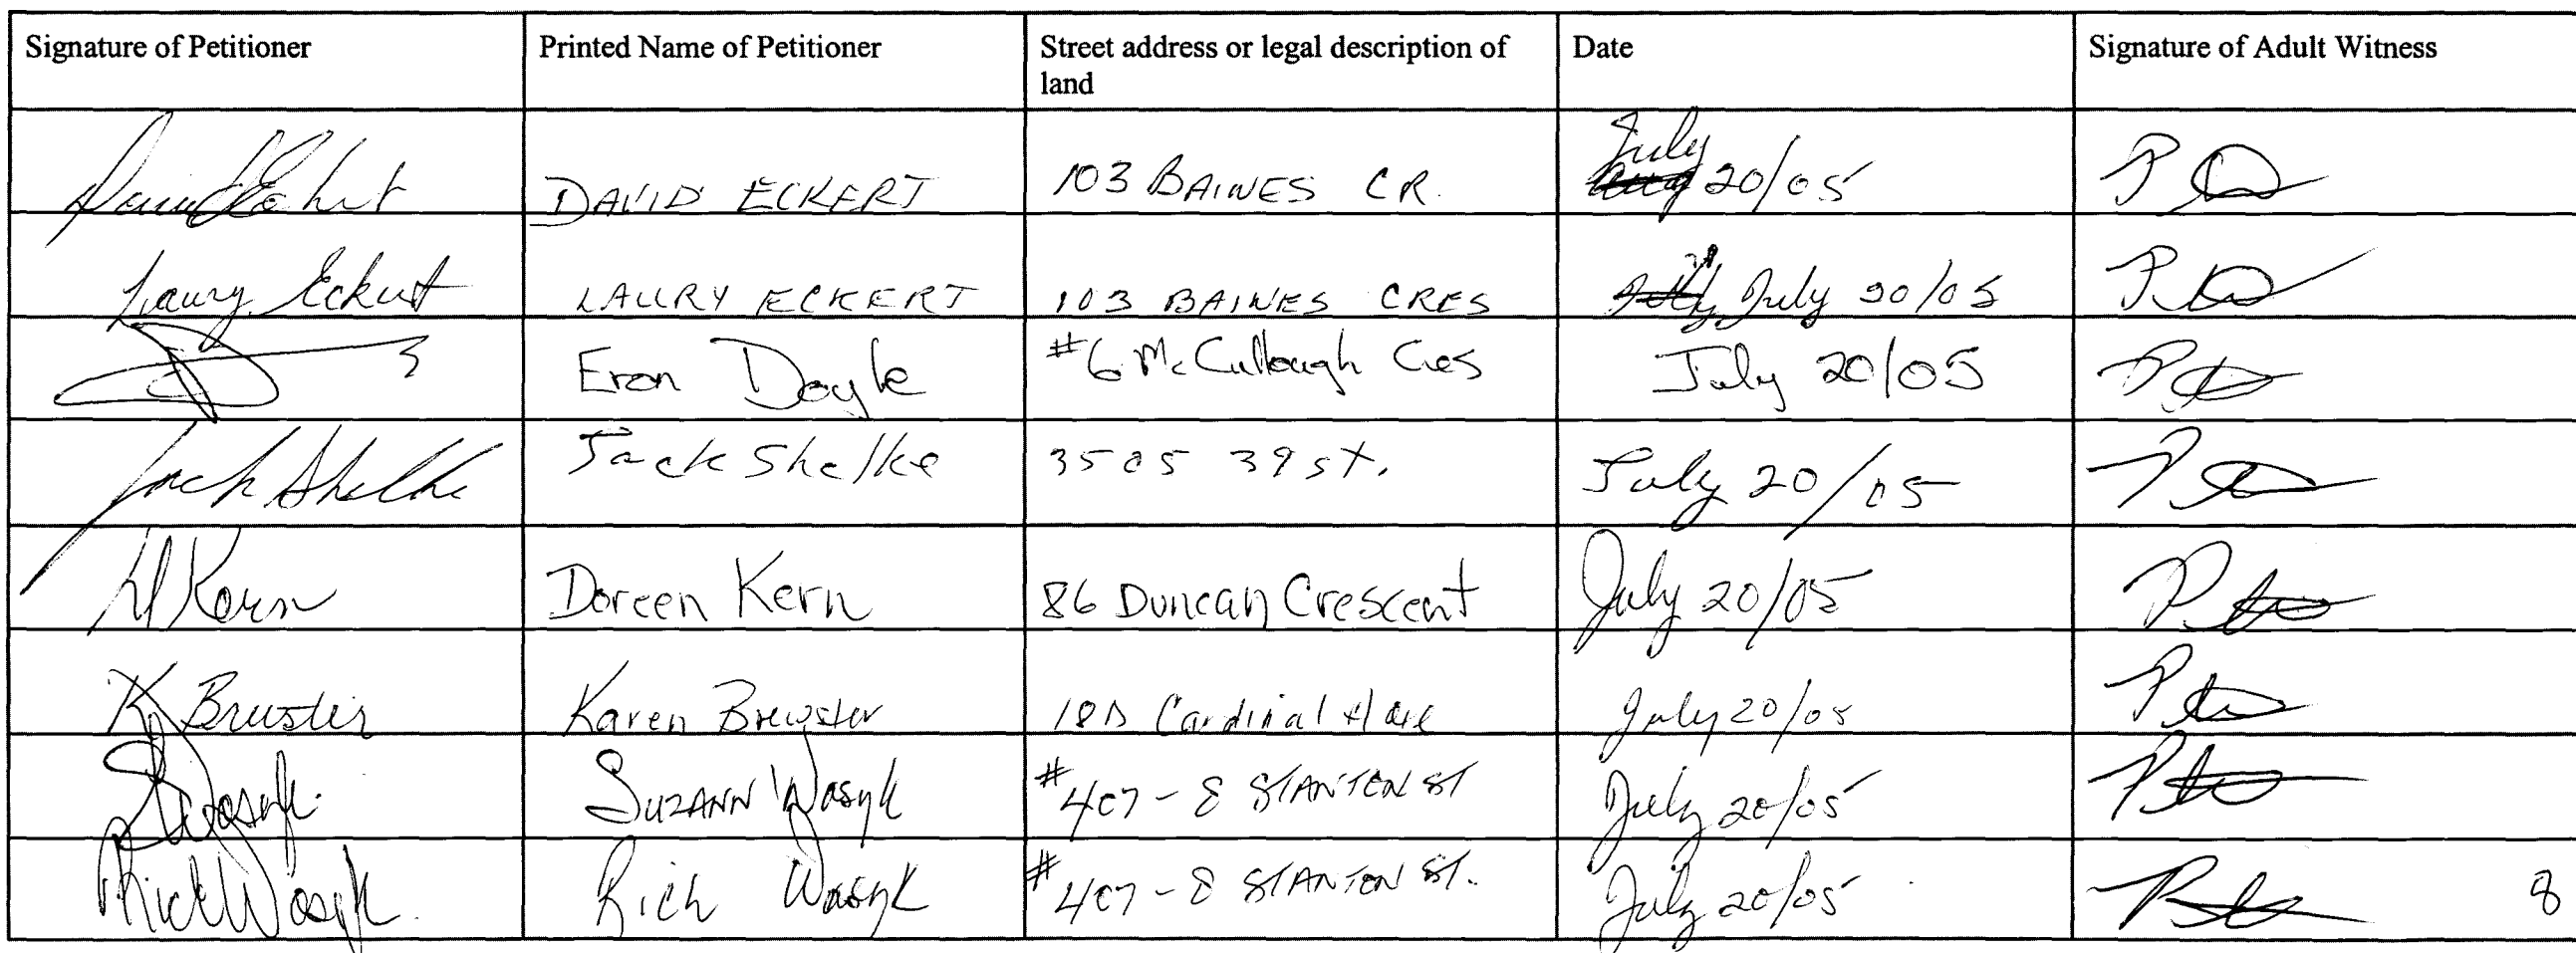 Signature of Petitioner Printed Name of Petitioner Street address or legal description of Date Signature of Adult Witness
land
David Eckert DAVID ECKERT 103 BAINES CR. July 20/05
Laury Eckert LAURY ECKERT 103 BAINES CRES July 20/05
Eron Doyle #6 McCullough Cres July 20/05
Jack Shelke Jack Shelke 3505 39 st. July 20/05
D Kern Doreen Kern 86 Duncan Crescent July 20/05
K Brewster Karen Brewster Cardinal July 20/05
S Wasyk SUZANN Wasyk #407-8 STANTON ST July 20/05
Rick Wasyk Rich Wasyk #407-8 STANTON ST. July 20/05 8